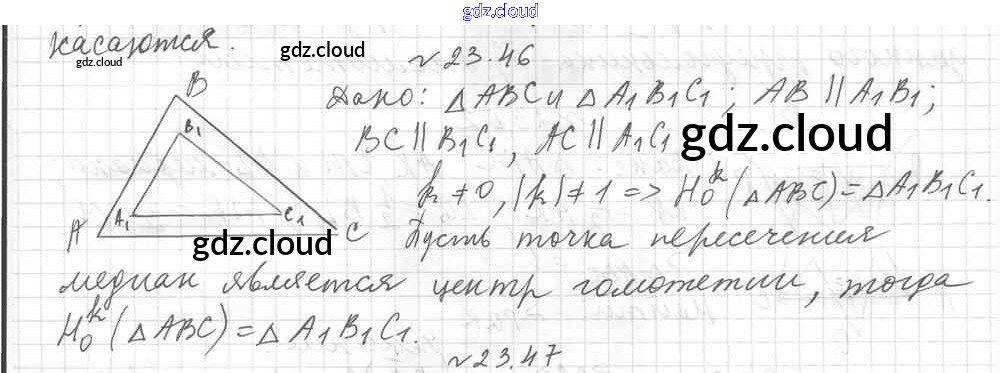 gdz.cloud
касаются.
gdz.cloud
gdz.cloud
№ 23.46
B
Дано: △ABC и △A₁B₁C₁; AB || A₁B₁;
B₁
BC || B₁C₁, AC || A₁C₁
gdz.cloud
k ≠ 0, |k| ≠ 1 => H₀ᵏ(△ABC) = △A₁B₁C₁.
A A₁ C₁ C
gdz.cloud
Пусть точка пересечения
медиан является центр гомотетии, тогда
H₀ᵏ(△ABC) = △A₁B₁C₁.
gdz.cloud
№ 23.47